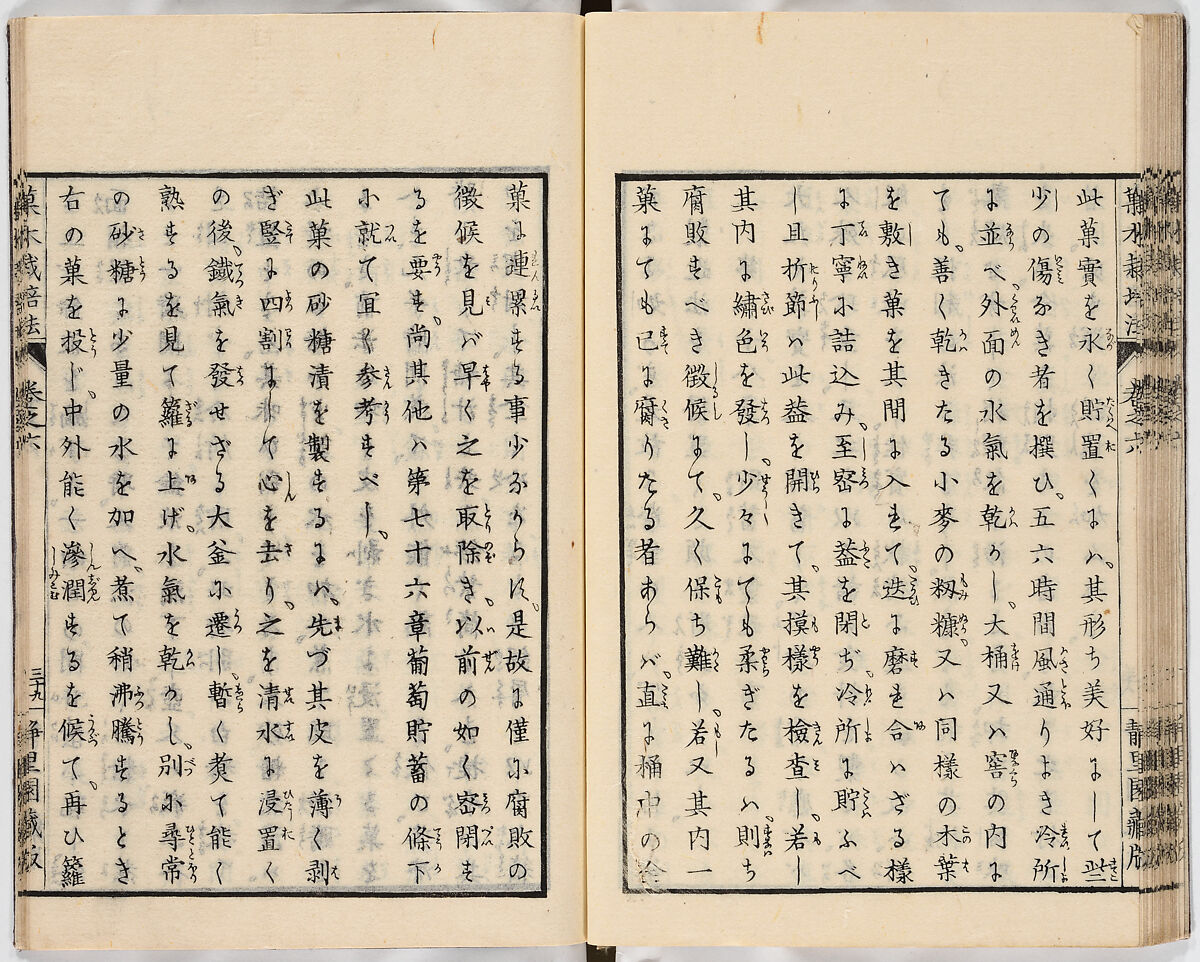 菓木栽培法 卷之六 靜里園藏版
此菓實を永く貯置くにハ其形ち美好にして些
少しの傷なき者を撰ひ五六時間風通りよき冷所
に並べ外面の水氣を乾かし大桶又ハ窖の内に
ても善く乾きたる小麥の籾糠又ハ同樣の木葉
を敷き菓を其間に入れて迭に磨れ合ハざる樣
に丁寧に詰込み至密に葢を閉ぢ冷所に貯ふべ
し且折節ハ此葢を開きて其摸樣を檢査し若し
其内に繡色を發し少々にても柔ぎたるハ則ち
腐敗すべき徴候にて久く保ち難し若又其内一
菓にても已に腐りたる者あらバ直に桶中の全
菓に連累する事少なからず是故に僅に腐敗の
徴候を見バ早く之を取除き以前の如く密閉す
るを要す尚其他ハ第七十六章葡萄貯蓄の條下
に就て冝く參考すべし
此菓の砂糖漬を製するにハ先づ其皮を薄く剥
ぎ竪に四割にして心を去り之を清水に浸置く
の後鐵氣を發せざる大釜に遷し暫く煑て能く
熟するを見て籮に上げ水氣を乾かし別に尋常
の砂糖に少量の水を加へ煮て稍沸騰するとき
右の菓を投じ中外能く滲潤するを候て再ひ籮
菓木栽培法 卷之六 三十九 靜里園藏版